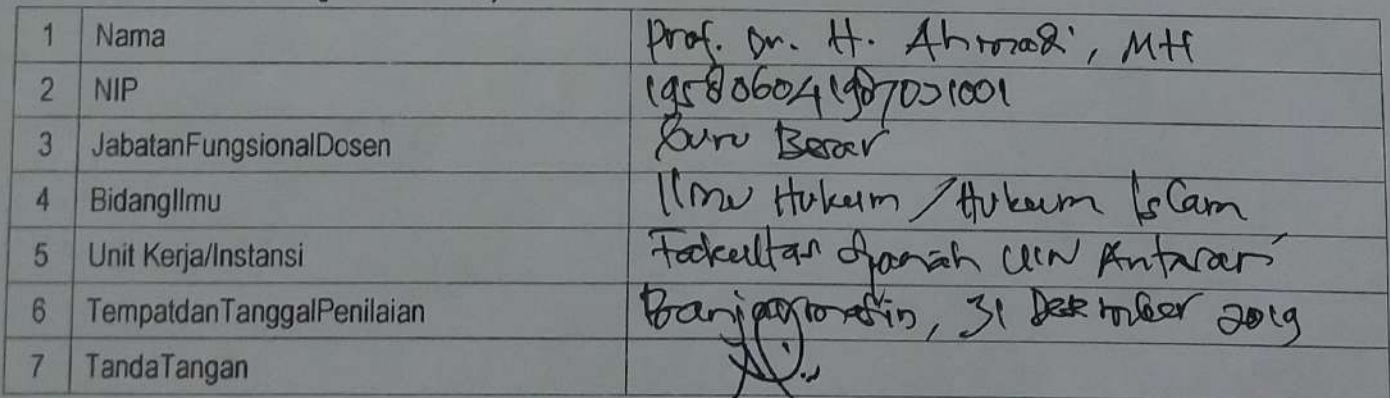 1 Nama Prof. Dr. H. Ahmadi, MH
2 NIP 195806041987031001
3 JabatanFungsionalDosen Guru Besar
4 BidangIlmu Ilmu Hukum / Hukum Islam
5 Unit Kerja/Instansi Fakultas Syariah UIN Antasari
6 TempatdanTanggalPenilaian Banjarmasin, 31 Desember 2019
7 TandaTangan